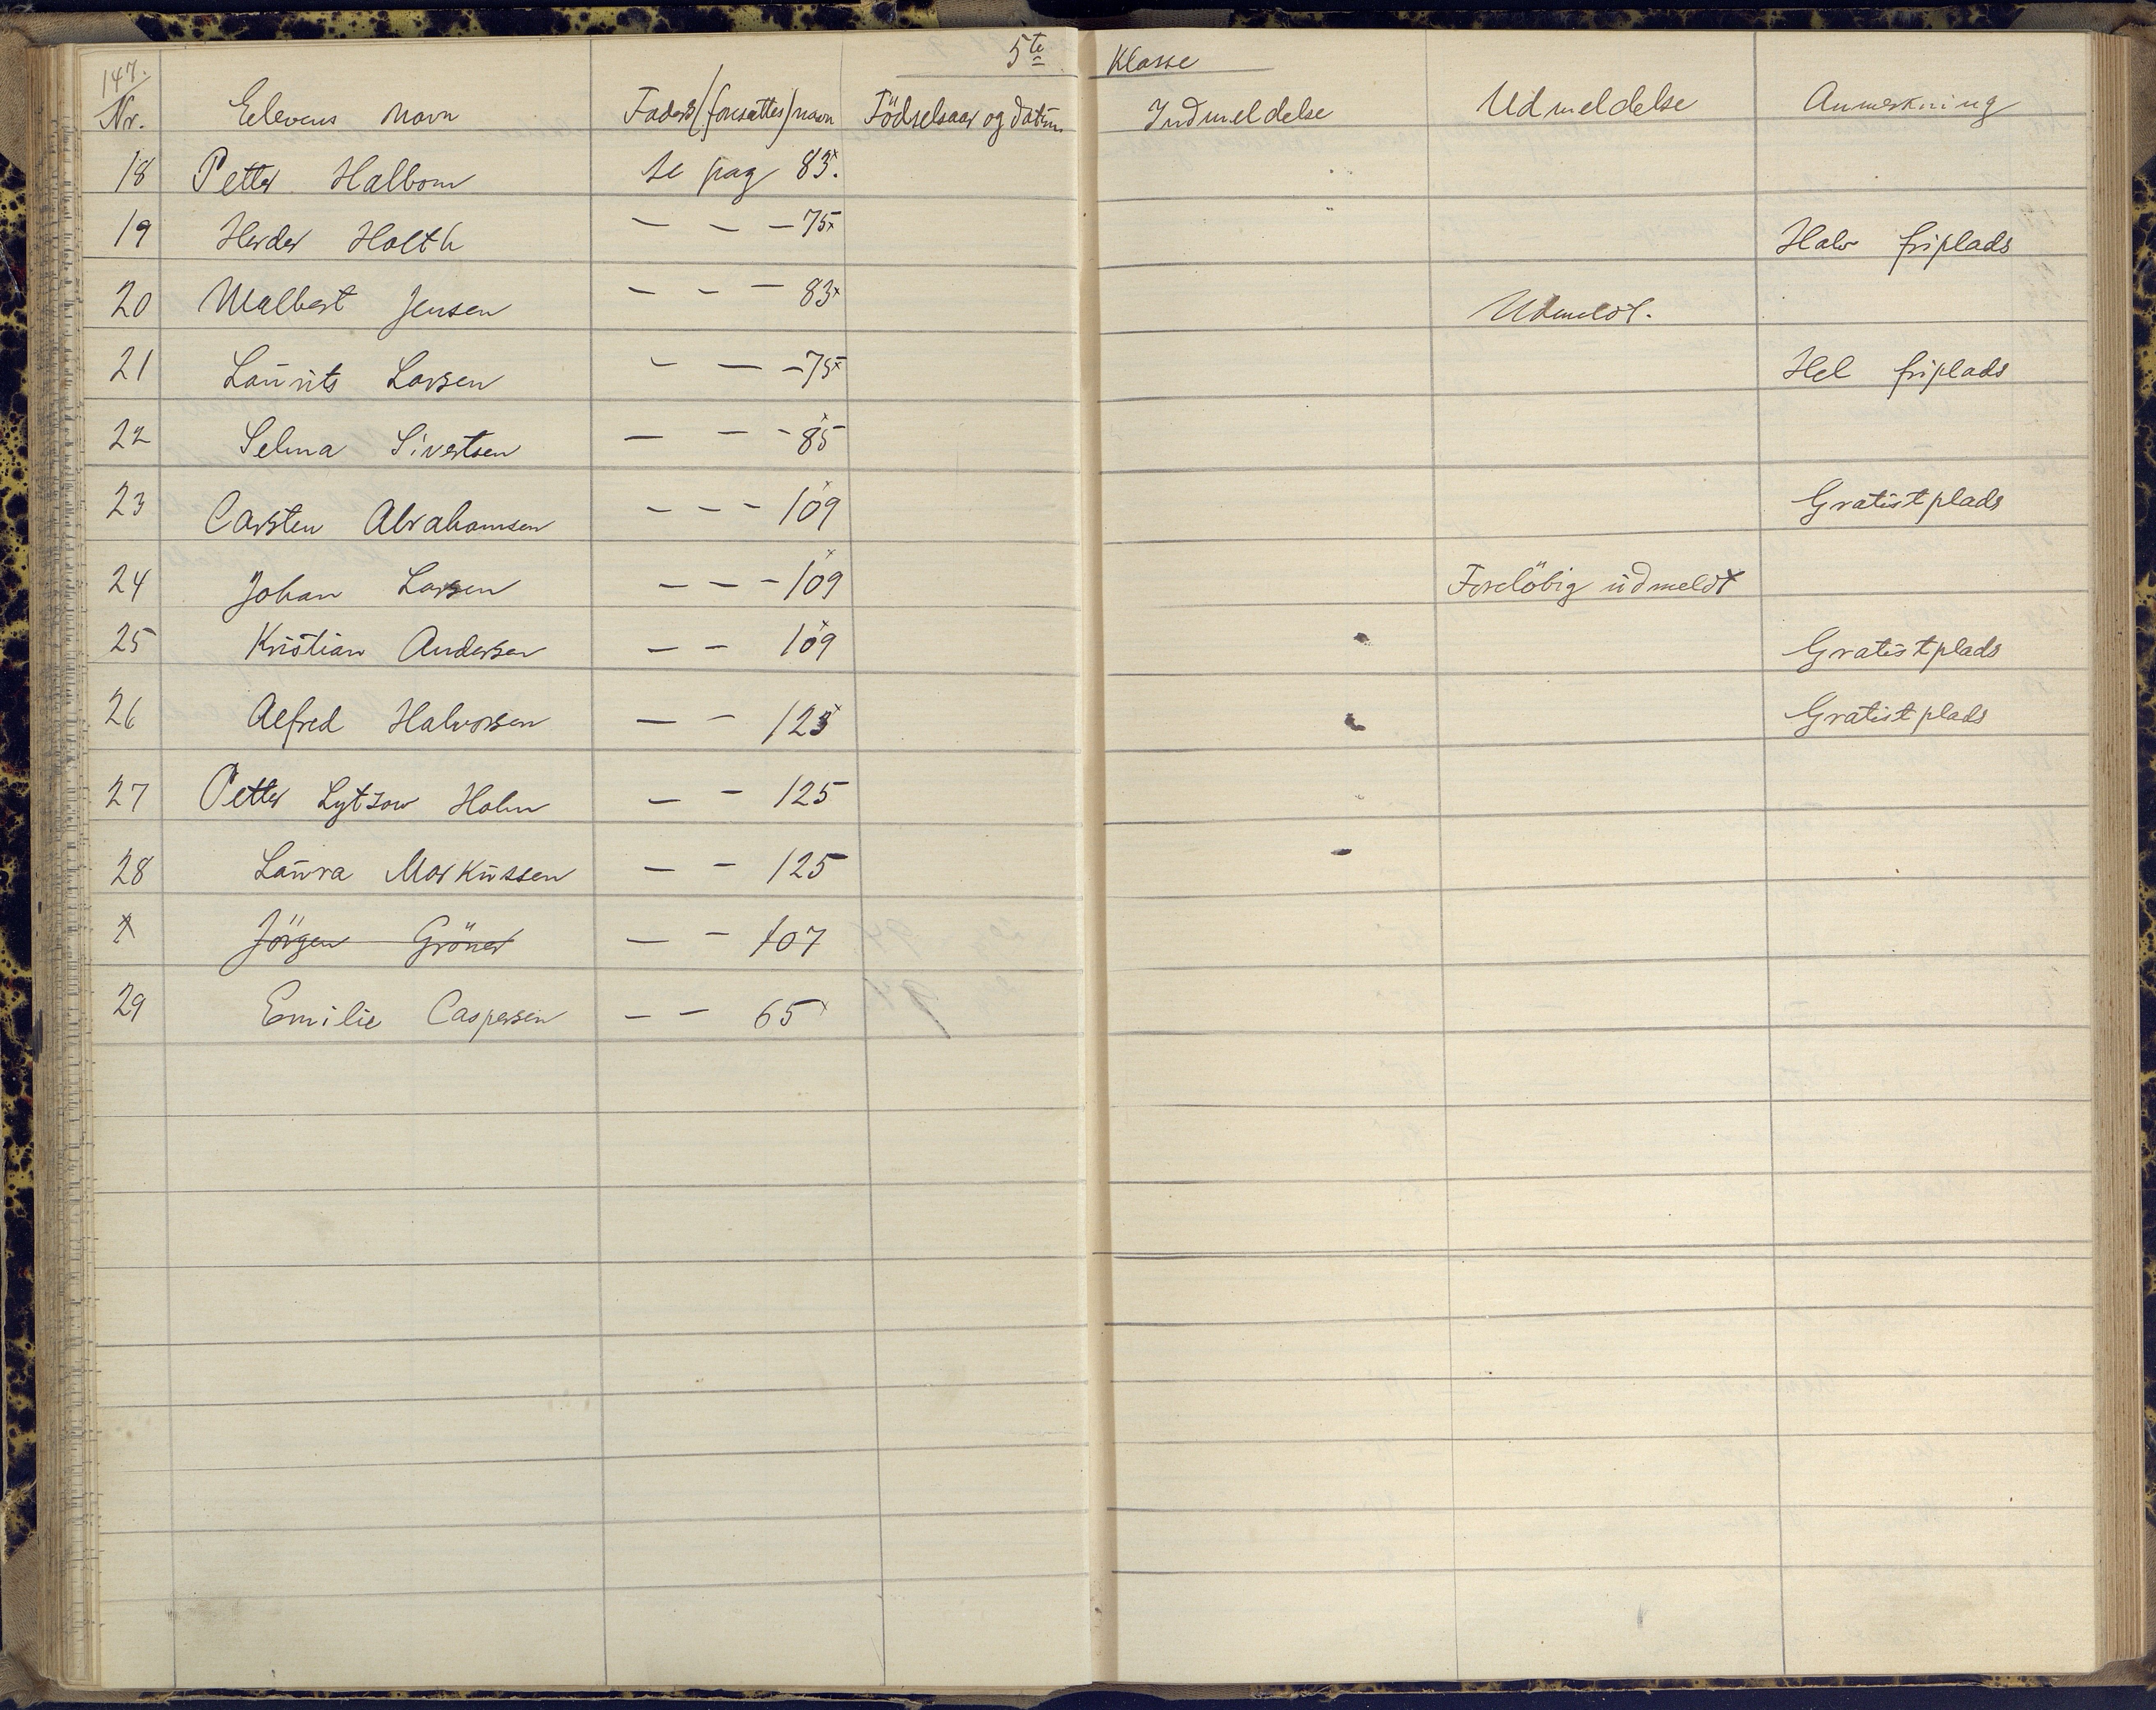 147.
5te Klasse
Nr. Elevens navn Faders/foresattes/navn Födselsaar og datum Indmeldelse Udmeldelse Anmerkning
18 Petter Halbom se pag 83.
19 Herder Holth — — — 75 Halv friplads
20 Walbert Jensen — — — 83 Udmeldt.
21 Laurits Larsen — — — 75 Hel friplads
22 Selma Sivertsen — — — 85
23 Carsten Abrahamsen — — — 109 Gratistplads
24 Johan Larsen — — — 109 Foreløbig udmeldt
25 Kristian Andersen — — 109 Gratistplads
26 Alfred Halvorsen — — 123 Gratistplads
27 Petter Lytzow Holm — — 125
28 Laura Markussen — — 125
Jörgen Gröner — — 107
29 Emilie Caspersen — — 65